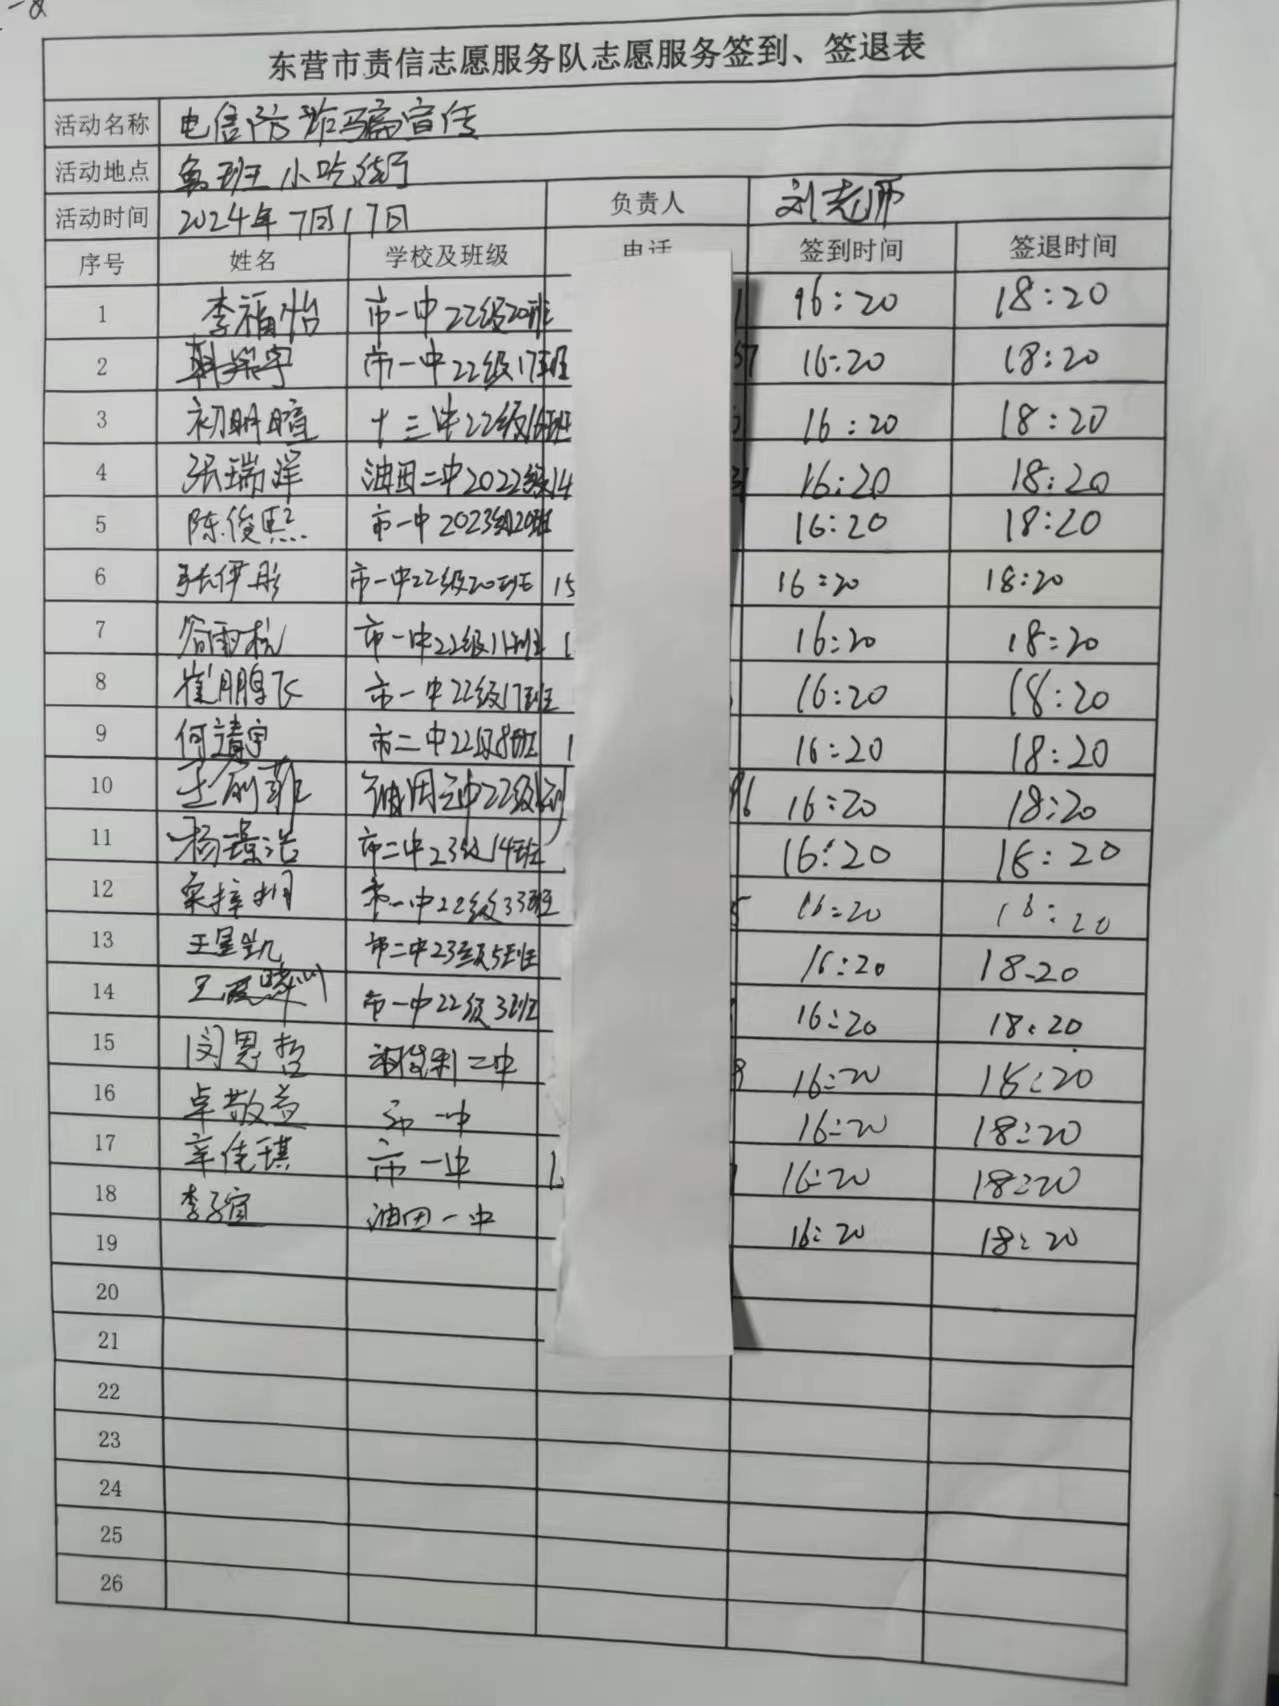 东营市责信志愿服务队志愿服务签到、签退表
活动名称 电信防诈骗宣传
活动地点 鲁班小吃街
活动时间 2024年7月17日 负责人 刘老师
序号 姓名 学校及班级 电话 签到时间 签退时间
1 李福怡 市一中22级20班 16:20 18:20
2 市一中22级17班 57 16:20 18:20
3 初明暄 十三中22级 16:20 18:20
4 张瑞洋 油田二中2022级14 16:20 18:20
5 陈俊熙 市一中2023级20班 16:20 18:20
6 张伊彤 市一中22级20班 15 16:20 18:20
7 市一中22级11班 16:20 18:20
8 崔鹏飞 市一中22级17班 16:20 18:20
9 何靖宇 市二中22级8班 1 16:20 18:20
10 22级 96 16:20 18:20
11 杨璟浩 市二中23级14班 16:20 16:20
12 市一中22级33班 5 16:20 18:20
13 王星凯 市二中23级5班 16:20 18-20
14 市一中22级3班 16:20 18:20
15 闵思哲 二中 8 16:20 18:20
16 卓敬益 市一中 16:20 18:20
17 辛佳琪 市一中 16:20 18:20
18 李子宣 油田一中 16:20 18:20
19
20
21
22
23
24
25
26